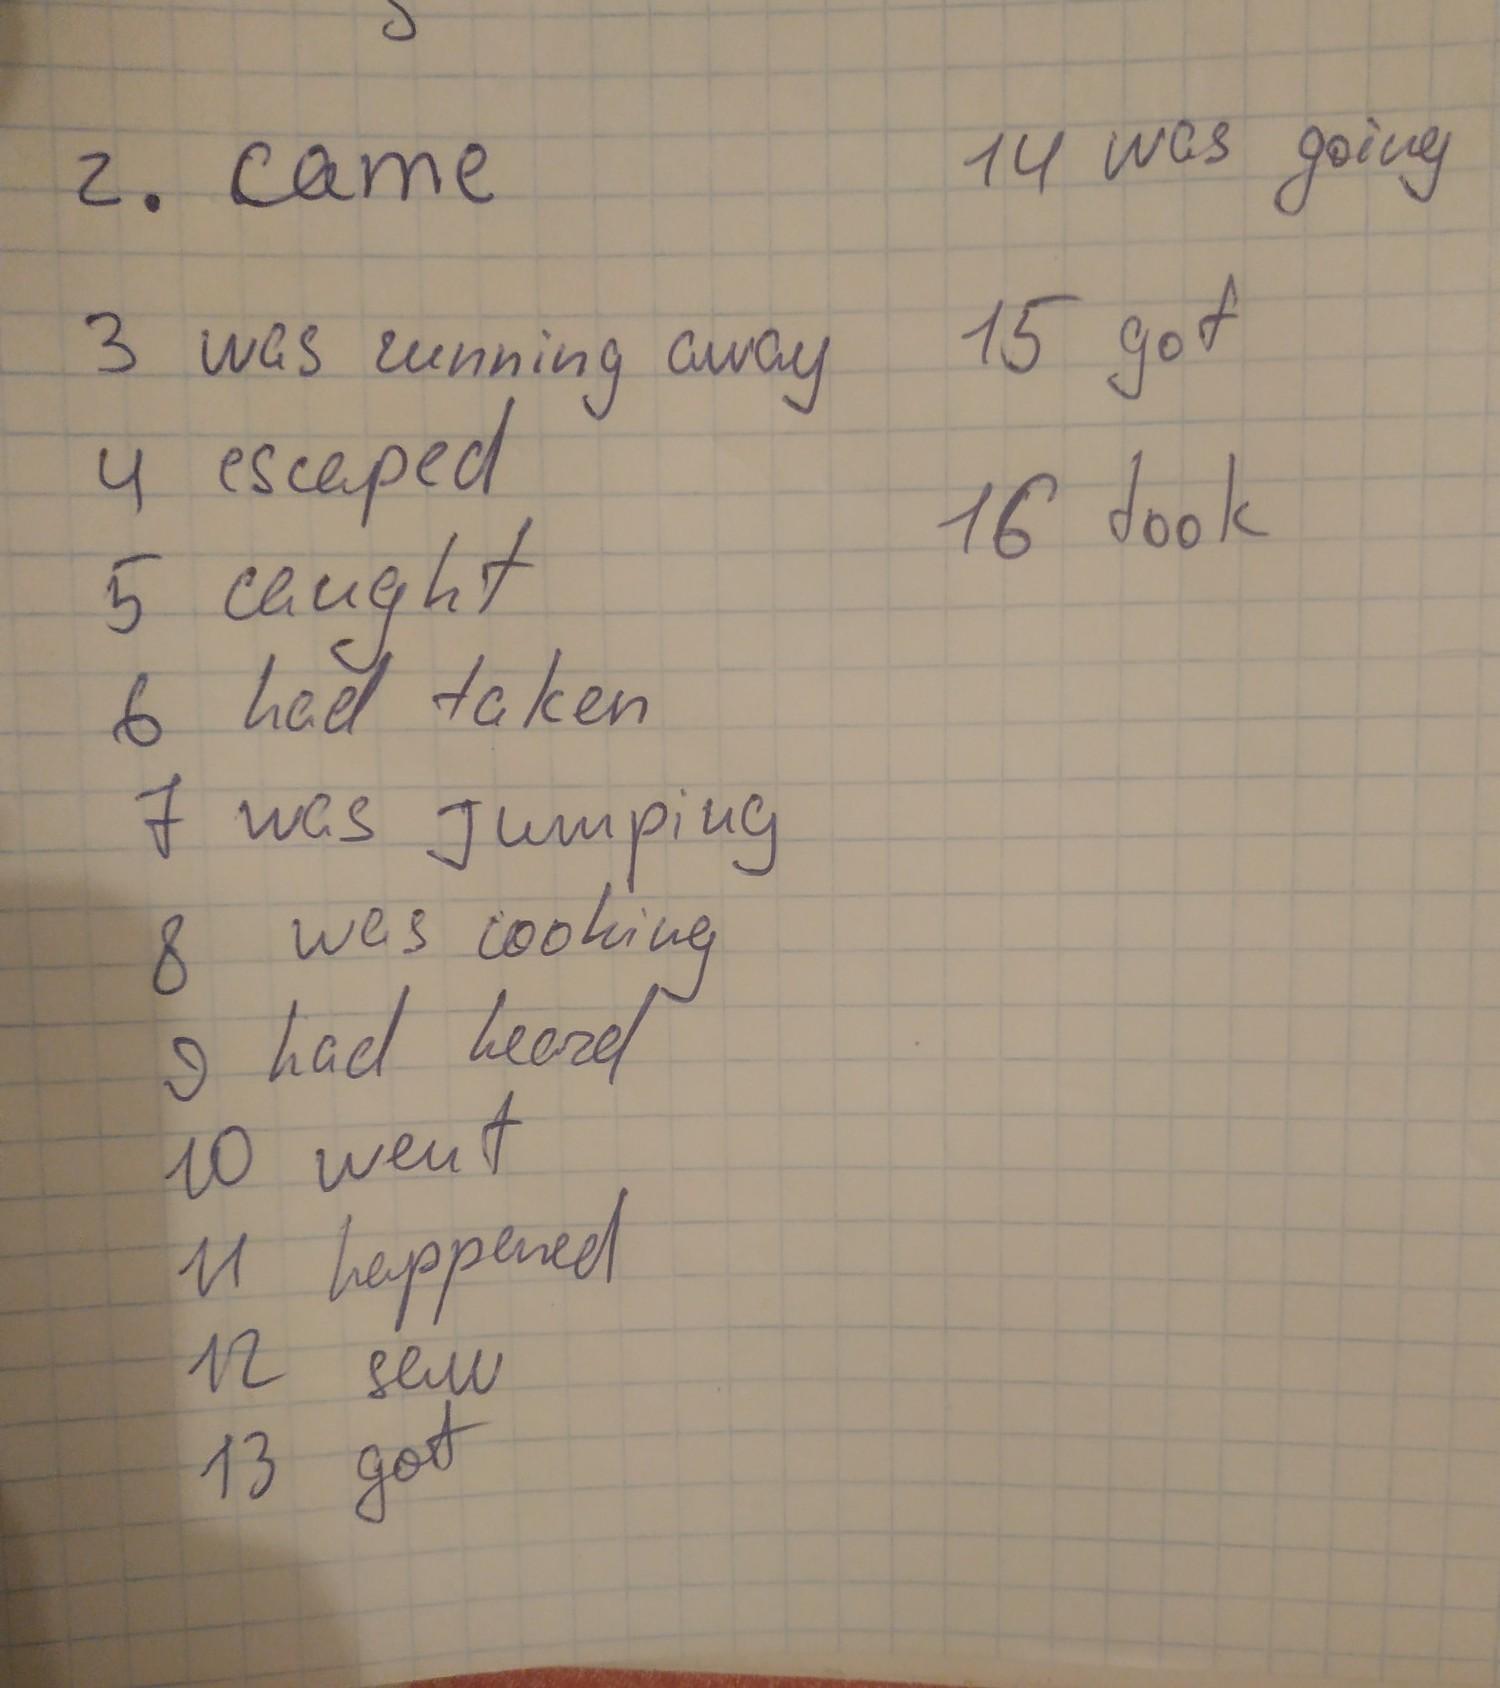 2. came
3 was running away
4 escaped
5 caught
6 had taken
7 was jumping
8 was cooking
9 had heard
10 went
11 happened
12 saw
13 got
14 was going
15 got
16 took